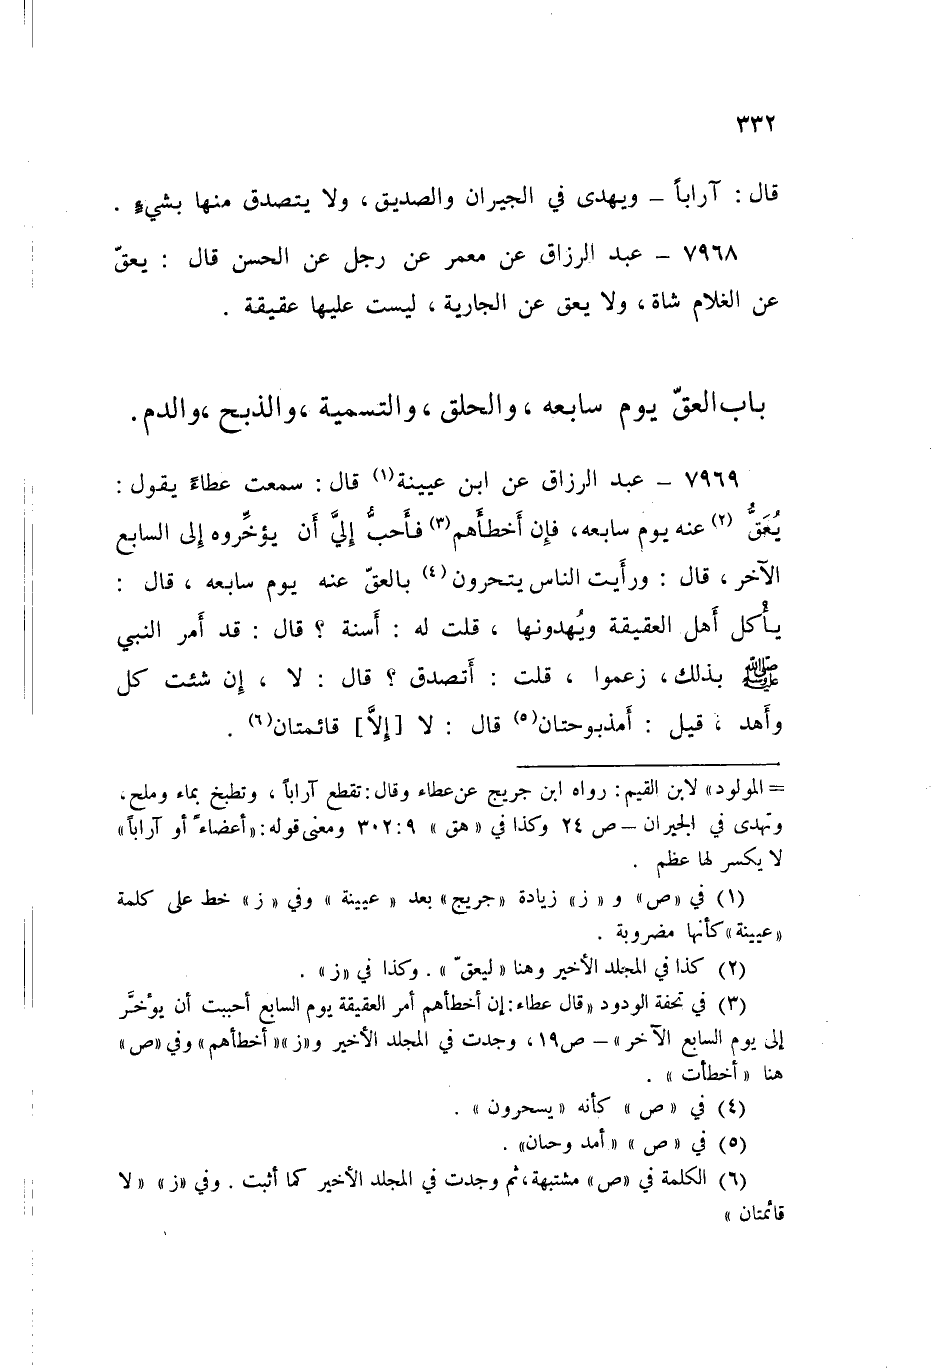 ٣٣٢
قال : آراباً – ويهدى في الجيران والصديق ، ولا يتصدق منها بشيءٍ .
٧٩٦٨ – عبد الرزاق عن معمر عن رجل عن الحسن قال : يعقّ
عن الغلام شاة ، ولا يعق عن الجارية ، ليست عليها عقيقة .
باب العقّ يوم سابعه ، والحلق ، والتسمية ، والذبح ، والدم .
٧٩٦٩ – عبد الرزاق عن ابن عيينة(١) قال : سمعت عطاءً يقول :
يُعَقُّ (٢) عنه يوم سابعه ، فإن أَخطأَهم(٣) فأَحبُّ إليَّ أَن يؤخِّروه إلى السابع
الآخر ، قال : ورأَيت الناس يتحرون(٤) بالعقّ عنه يوم سابعه ، قال :
يأْكل أَهل العقيقة ويُهدونها ، قلت له : أَسنة ؟ قال : قد أَمر النبي
ﷺ بذلك ، زعموا ، قلت : أَتصدق ؟ قال : لا ، إن شئت كل
وأَهد ، قيل : أَمذبوحتان(٥) قال : لا [إلاَّ] قائمتان(٦) .
= المولود» لابن القيم : رواه ابن جريج عن عطاء وقال : تقطع آراباً ، وتطبخ بماء وملح ،
وتهدى في الجيران – ص ٢٤ وكذا في « هق » ٩ : ٣٠٢ ومعنى قوله : «أعضاءً أو آراباً»
لا يكسر لها عظم .
(١) في «ص» و « ز» زيادة «جريج» بعد « عيينة » وفي « ز» خط على كلمة
«عيينة» كأنها مضروبة .
(٢) كذا في المجلد الأخير وهنا « ليعقّ » . وكذا في «ز» .
(٣) في تحفة الودود «قال عطاء : إن أخطأهم أمر العقيقة يوم السابع أحببت أن يؤخَّر
إلى يوم السابع الآخر » – ص١٩ ، وجدت في المجلد الأخير و«ز» «أخطأهم» وفي «ص»
هنا « أخطأت » .
(٤) في « ص » كأنه «يسحرون » .
(٥) في « ص » « أمد وحان» .
(٦) الكلمة في «ص» مشتبهة ، ثم وجدت في المجلد الأخير كما أثبت . وفي «ز» « لا
قائمتان »